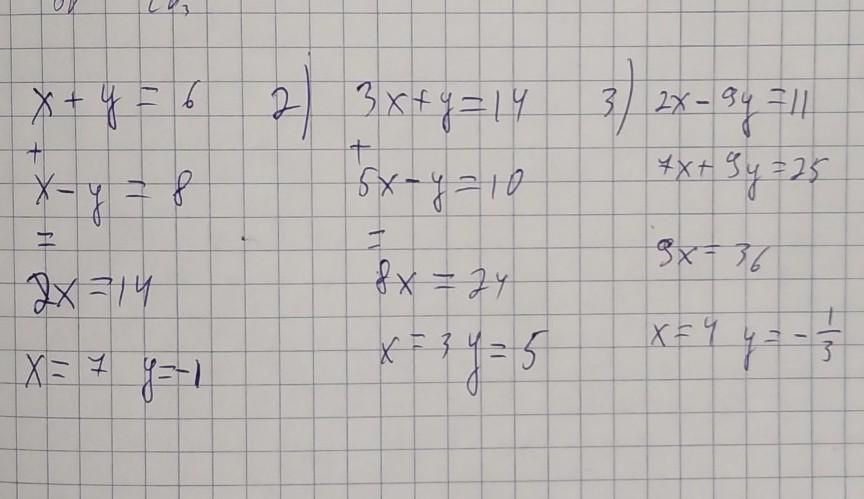 x + y = 6
+
x - y = 8
=
2x = 14
x = 7 y = -1
2) 3x + y = 14
+
5x - y = 10
=
8x = 24
x = 3 y = 5
3) 2x - 9y = 11
7x + 9y = 25
9x = 36
x = 4 y = -1/3